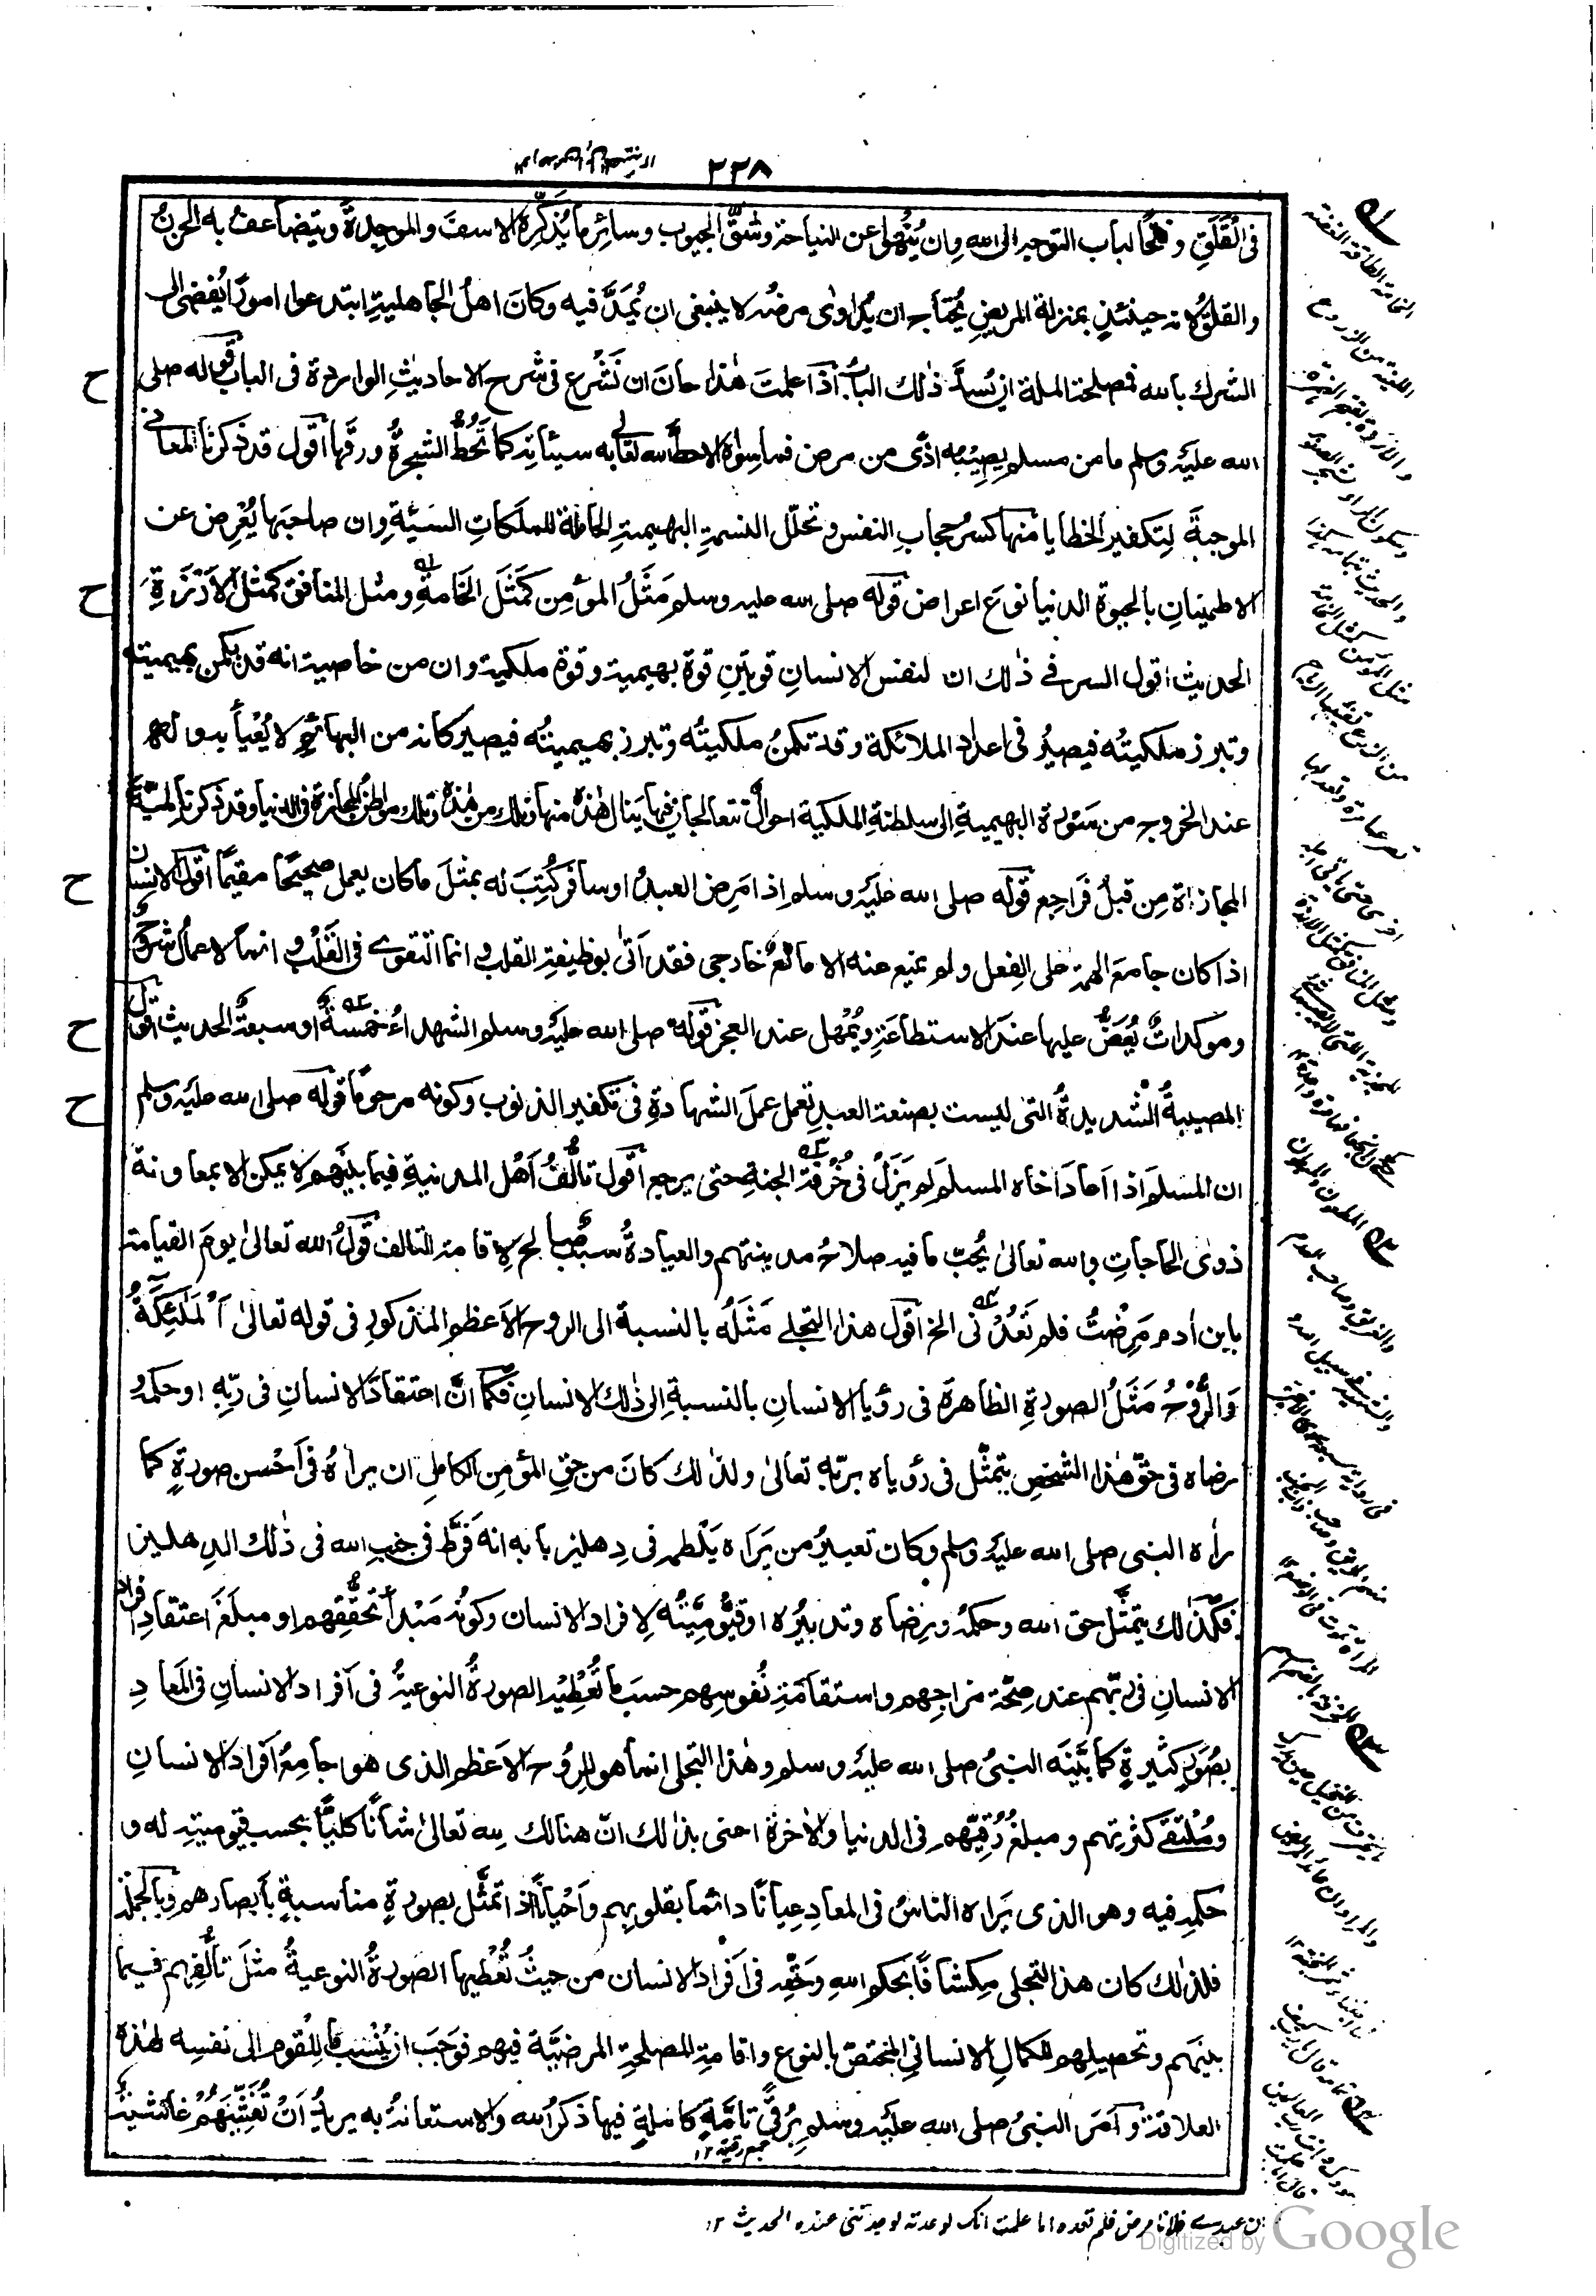 ٢٢٨
فى القَلَقِ وفتحًا لباب التوجه الى الله وان يُنهٰى عن النياحة وشقّ الجيوب وسائر ما يُذَكِّره الاسفَ والموجِدةَ ويتضاعف به الحزنُ
والقلقُ لانه حينئذٍ بمنزلة المريضِ يُحتاج ان يُداوٰى مرضُه لا ينبغى ان يُمَدَّ فيه وكانَ اهلُ الجاهليةِ ابتدعوا امورًا يُفضى الى
الشرك بالله فمصلحة الملة ان يُسدَّ ذٰلك الباب اذا علمتَ هٰذا حانَ ان نَشرُع فى شرح الاحاديثِ الواردة فى الباب قوله صلى
الله عليه وسلم ما من مسلم يصيبُه اذًى من مرض فما سواه الا حطَّ الله تعالى به سيئاته كما تَحُطُّ الشجرةُ ورقَها اقول قد ذكرنا المعانى
الموجبةَ لتكفير الخطايا منها كسرُ حجابِ النفس وتحلّل النسمةِ البهيميةِ الحاملة للملكاتِ السَيّئةِ وان صاحبَها يُعْرِض عن
الاطمينانِ بالحيوة الدنيا نوعَ اعراض قوله صلى الله عليه وسلم مَثَلُ المؤمِن كَمَثَلِ الخَامةِ ومثل المنافق كمثل الاَرْزَةِ
الحديث اقول السر فى ذٰلك ان لنفس الانسانِ قوتينِ قوة بهيمية وقوة ملكية وان من خاصيته انه قد تكمن بهيميته
وتبرز ملكيتُه فيصيرُ فى اعداد الملائكة وقد تكمنُ ملكيتُه وتبرز بهيميتُه فيصير كانه من البهائم لا يُعْبأُ به ولهم
عند الخروج من سَوْرة البهيميةِ الى سلطنةِ الملكية احوالٌ تتعالجان فيها ينال هٰذه منها وتلك من هٰذه وتلك مواطنُ المجازاة فى الدنيا وقد ذكرنا لِمّيّةَ
المجازاة مِن قبلُ فَراجِع قوله صلى الله عليه وسلم اذا مَرِض العبدُ او سافر كُتِبَ له بمثل ما كان يعمل صحيحًا مقيمًا اقول الانسان
اذا كان جامعَ الهمة على الفعل ولم يمنع عنه الا مانعٌ خارجى فقد اَتٰى بوظيفةِ القلب وانما التقوى فى القَلْبِ وانما الاعمال شروحٌ
وموكداتٌ يُعَضُّ عليها عندَ الاستطاعةِ ويُمْهَل عند العجز قوله صلى الله عليه وسلم الشهداءُ خمسةٌ او سبعةٌ الحديث اقول
المصيبةُ الشديدةُ التى ليست بصنعة العبدِ تعمل عملَ الشهادةِ فى تكفير الذنوب وكونه مرحومًا قوله صلى الله عليه وسلم
ان المسلم اذا عادَ اخاه المسلم لم يزل فى خُرْفة الجنة حتى يرجع اقول تالّفُ اَهْل المدينةِ فيما بينهم لا يمكن الا بمعاونة
ذوى الحاجاتِ والله تعالىٰ يُحبّ ما فيه صلاحُ مدينتهم والعيادةُ سببٌ صالح لاقامة التالف قولُ الله تعالىٰ يومَ القيامة
يا بن اٰدم مَرِضتُ فلم تَعُدْنى الخ اقول هذا التجلى مَثَلُه بالنسبة الى الروح الاَعظم المذكورِ فى قوله تعالىٰ اَلْمَلٰئِكَةُ
وَالرُّوْحُ مَثَلُ الصورةِ الظاهرة فى رؤيا الانسانِ بالنسبةِ الى ذٰلك الانسانِ فكما انّ اعتقادَ الانسانِ فى ربّهِ او حكمَه و
رضاه فى حقّ هٰذا الشخصِ يتمثّل فى رؤياه بربّه تعالىٰ ولذٰلك كانَ من حقِ المؤمنِ الكاملِ ان يراهُ فى اَحْسن صورةٍ كما
رأه النبى صلى الله عليه وسلم وكان تعبيرُ من يَراه يَلْطِمه فى دِهليز بابه انه فَرَّط فى جنبِ الله فى ذٰلك الدِهليز
فكذٰلك يتمثّل حق الله وحكمُه ورِضاه وتدبيرُه او قيُّومِيّتُه لافراد الانسان وكونُه مَبْدأ تحقُّقِهم او مبلغَ اعتقادِ افراد
الانسانِ فى ربّهم عند صِحّة مزاجِهم واستقامةِ نُفوسِهم حسبَ ما تُعْطِيْه الصورةُ النوعيةُ فى اَفراد الانسانِ فى المَعادِ
بصُوَرٍ كثيرةٍ كما بيّنَه النبىُ صلى الله عليه وسلم وهٰذا التجلى انما هو للروح الاَعظم الذى هو جامعُ اَفراد الانسانِ
ومُلْتقٰى كثرتِهم ومبلغ رُقِيّهم فى الدنيا والاٰخرة اعنى بذٰلك انّ هنالك لله تعالىٰ شانًا كليًّا بحسب قيوميته له و
حكمِه فيه وهو الذى يَراه النّاسُ فى المعادِ عِيانًا دائما بقلوبهم واَحْيانًا اذا تمثَّل بصورةٍ مناسبةٍ بابصارهم وبالجملة
فلذٰلك كان هذا التجلى مِكشافًا بحكم اللهِ وحَقِّه فى اَفراد الانسان من حيثُ تُعْطيها الصورةُ النوعيةُ مثلَ تألّفِهم فيما
بينهم وتحصيلِهم للكمالِ الانسانىِ المختصّ بالنوع واقامةِ المصلحةِ المرضيّة فيهم فوَجَبَ ان يُنْسَب ما للقوم الى نفسِه لهٰذه
العلاقة وامَر النبىُ صلى الله عليه وسلم برُقًى تامّةٍ كاملةٍ فيها ذكرُ الله والاستعانةُ به يريدُ اَنْ تُغَشِّيَهُمْ غاشيةٌ
جمع رقية ١٢
ان عبدى فلانا مرض فلم تعده اما علمت انك لو عدته لوجدتنى عنده الحديث ١٢
Digitized by Google